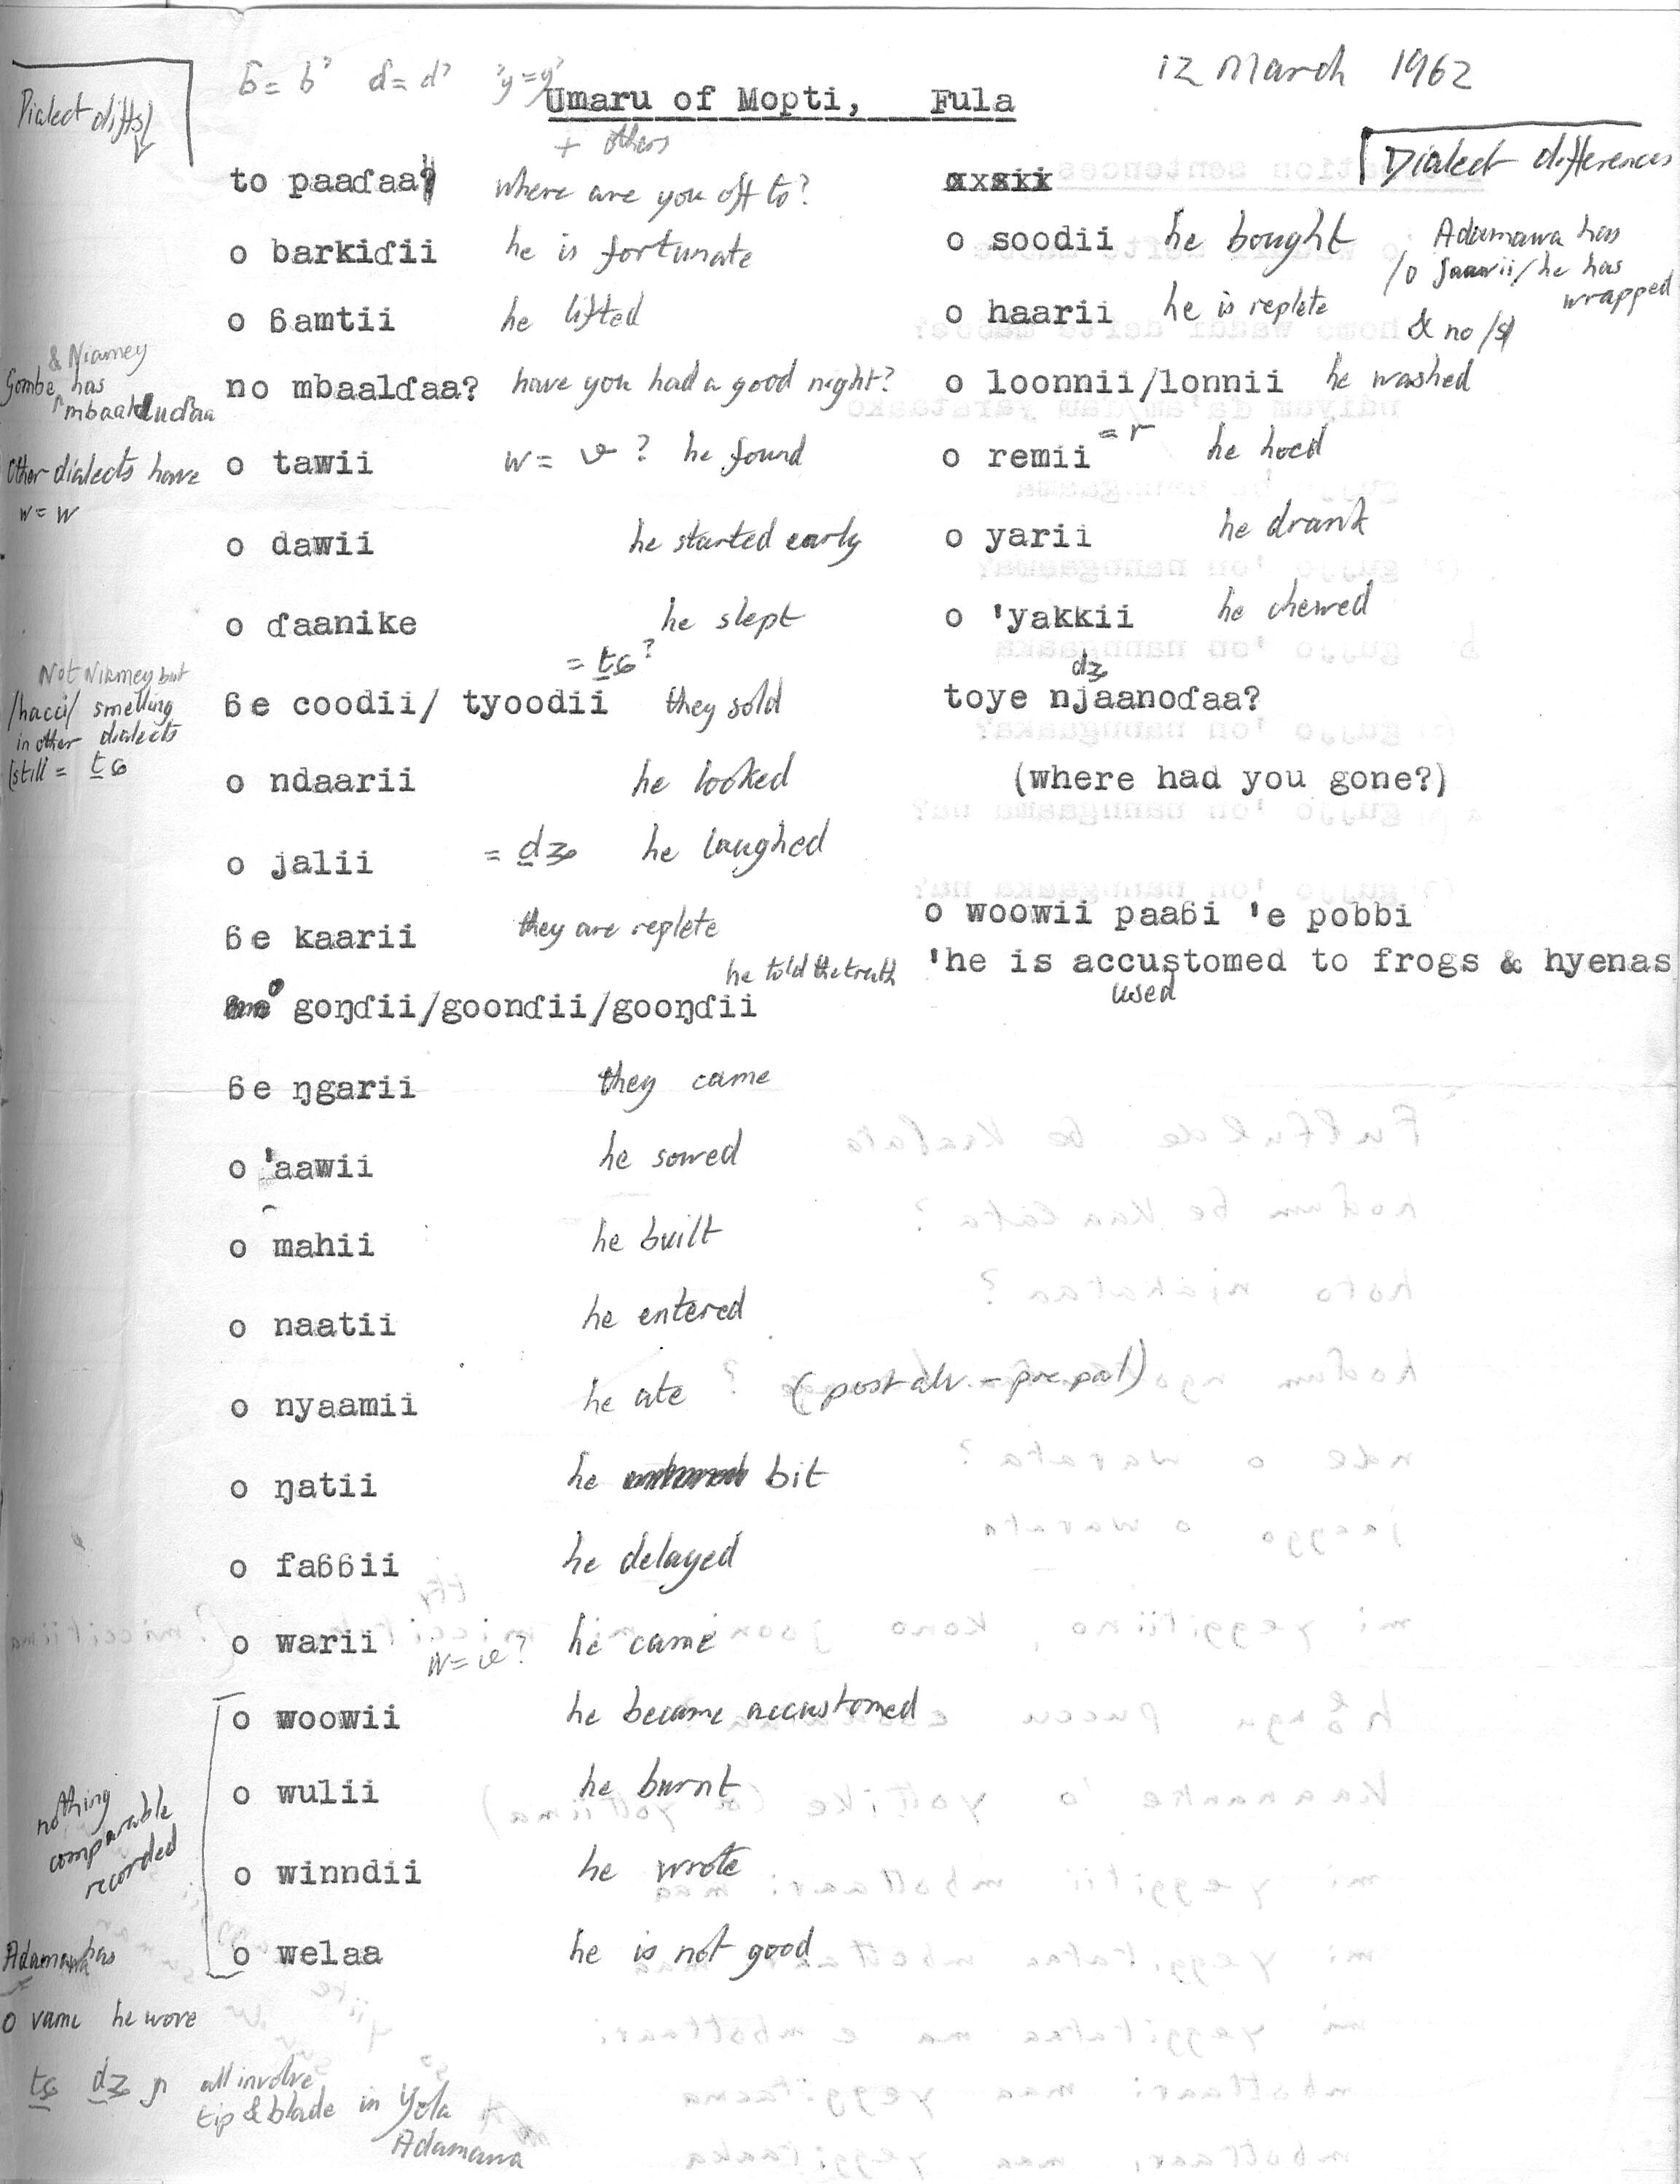 12 March 1962
ɓ = b' ɗ = d' 'y = y'
Umaru of Mopti, Fula
+ others
Dialect diffs
Dialect differences
to paaɗaa where are you off to?
o barkiɗii he is fortunate
o ɓamtii he lifted
& Niamey
Gombe has
mbaalɗuɗaa
no mbaalɗaa? have you had a good night?
Other dialects have
w = w
o tawii w = ʋ ? he found
o dawii he started early
o ɗaanike he slept
= tɕ ?
Not Niamey but
/hacci/ smelling
in other dialects
(still = tɕ
ɓe coodii/ tyoodii they sold
o ndaarii he looked
o jalii = dʑ he laughed
ɓe kaarii they are replete
he told the truth
o goŋɗii/goonɗii/gooŋɗii
ɓe ŋgarii they came
o 'aawii he sowed
o mahii he built
o naatii he entered
o nyaamii he ate (post alv. - pre pal)
o ŋatii he bit
o faɓɓii he delayed
o warii w = ʋ ? he came
o woowii he became accustomed
o wulii he burnt
o winndii he wrote
o welaa he is not good
nothing
comparable
recorded
Adamawa has
o vami he wore
tɕ dʑ ɲ all involve
tip & blade in Yola
Adamawa
o soodii he bought
Adamawa has
/o saawii/ he has
wrapped
& no /s/
o haarii he is replete
o loonnii/lonnii he washed
o remii = r he hoed
o yarii he drank
o 'yakkii he chewed
dʑ
toye njaanoɗaa?
(where had you gone?)
o woowii paaɓi 'e pobbi
'he is accustomed to frogs & hyenas
used